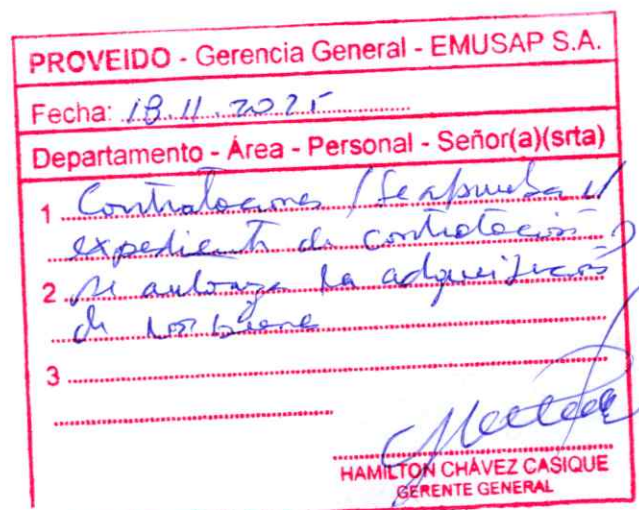 PROVEIDO - Gerencia General - EMUSAP S.A.
Fecha: 18.11.2025
Departamento - Área - Personal - Señor(a)(srta)
1 Contrataciones / Se aprueba el
expediente de contratación
2 se autoriza la adquisición
de los bienes
3
HAMILTON CHÁVEZ CASIQUE
GERENTE GENERAL